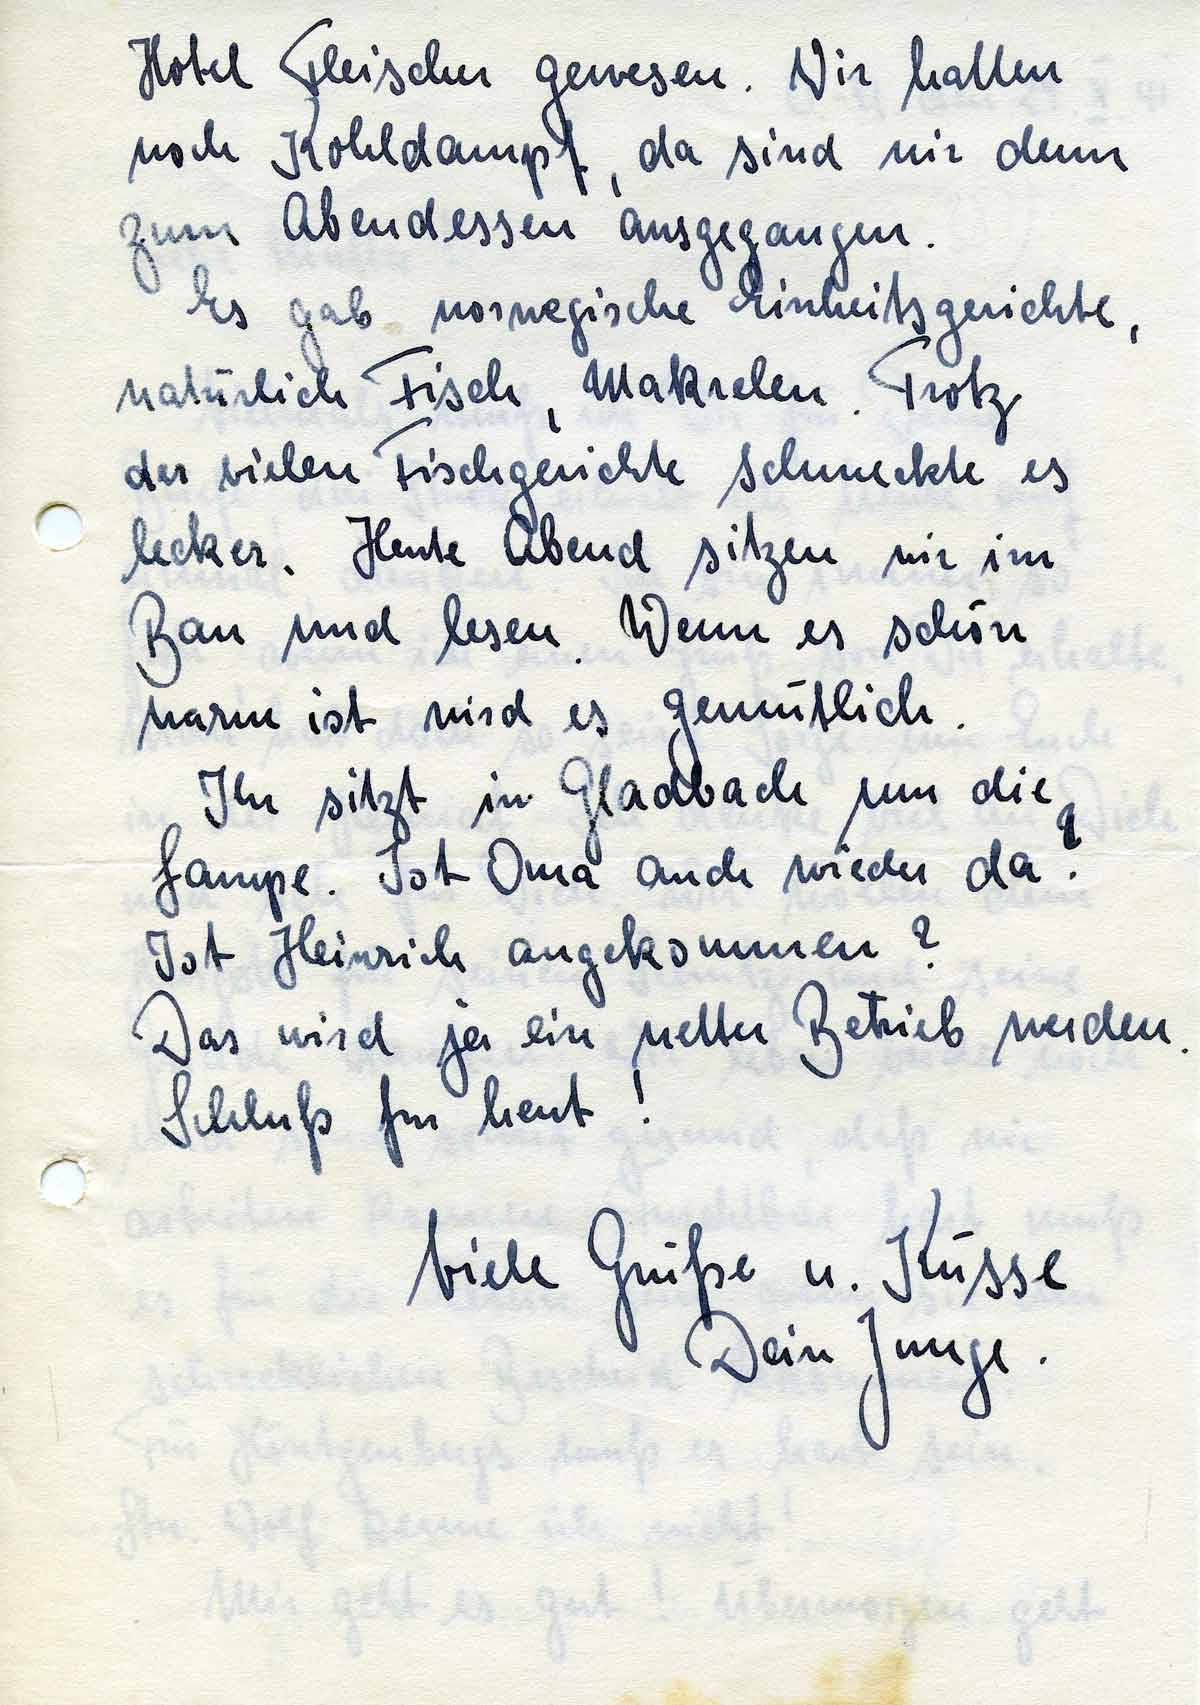 Hotel Fleischer gewesen. Wir hatten
noch Kohldampf, da sind wir denn
zum Abendessen ausgegangen.
Es gab norwegische Einheitsgerichte,
natürlich Fisch, Makrelen. Trotz
der vielen Fischgerichte schmeckte es
lecker. Heute Abend sitzen wir im
Bau und lesen. Wenn es schön
warm ist wird es gemütlich.
Ihr sitzt in Gladbach um die
Lampe. Ist Oma auch wieder da?
Ist Heinrich angekommen?
Das wird ja ein netter Betrieb werden.
Schluß für heut!
Viele Grüße u. Küsse
Dein Junge.